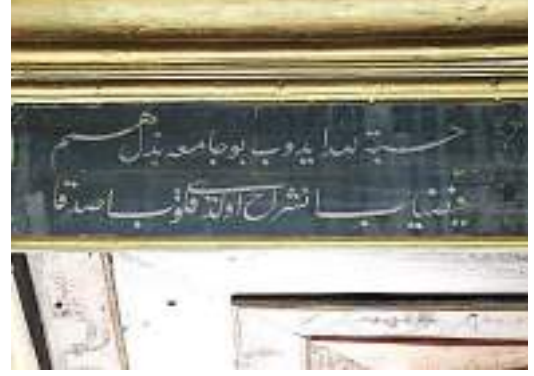 حسبة لله ایدوب بو جامعه بذل همم
فیضیاب انشراح اولدی قلوب اصدقا